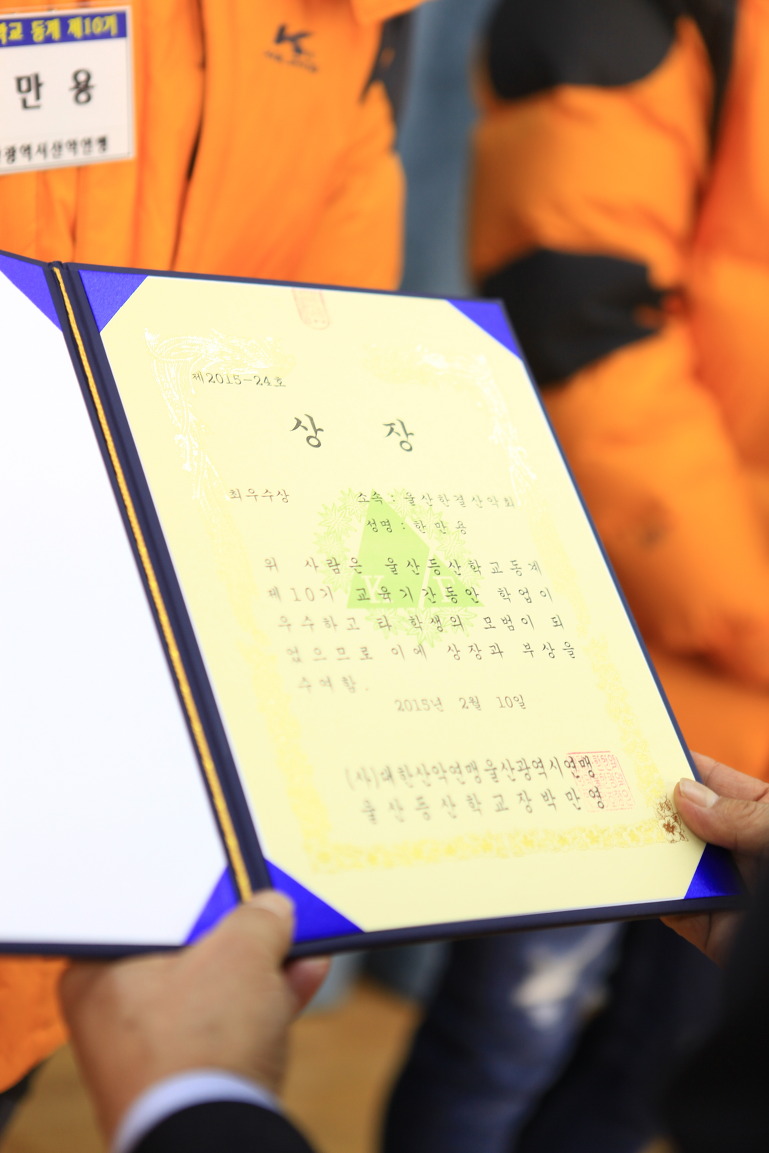 학교 동계 제10기
만 용
광역시산악연맹
K
제2015-24호
상 장
최우수상
소속 : 울산한결산악회
성명 : 한만용
위 사람은 울산등산학교동계
제10기 교육기간동안 학업이
우수하고 타 학생의 모범이 되
었으므로 이에 상장과 부상을
수여함.
2015년 2월 10일
(사)대한산악연맹울산광역시연맹
울산등산학교장박만영